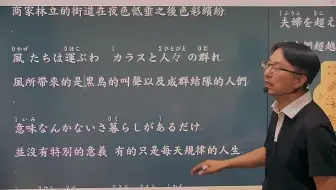 商家林立的街道在夜色低垂之後色彩繽紛
0かぜ 0はこ 1 2ひとびと
風たちは運ぶわ カラスと人々の群れ
風所帶來的是黑鳥的叫聲以及成群結隊的人們
1いみ 0く 1
意味なんかないさ暮らしがあるだけ
並沒有特別的意義 有的只是每天規律的人生
1ふうふ
夫婦を超え